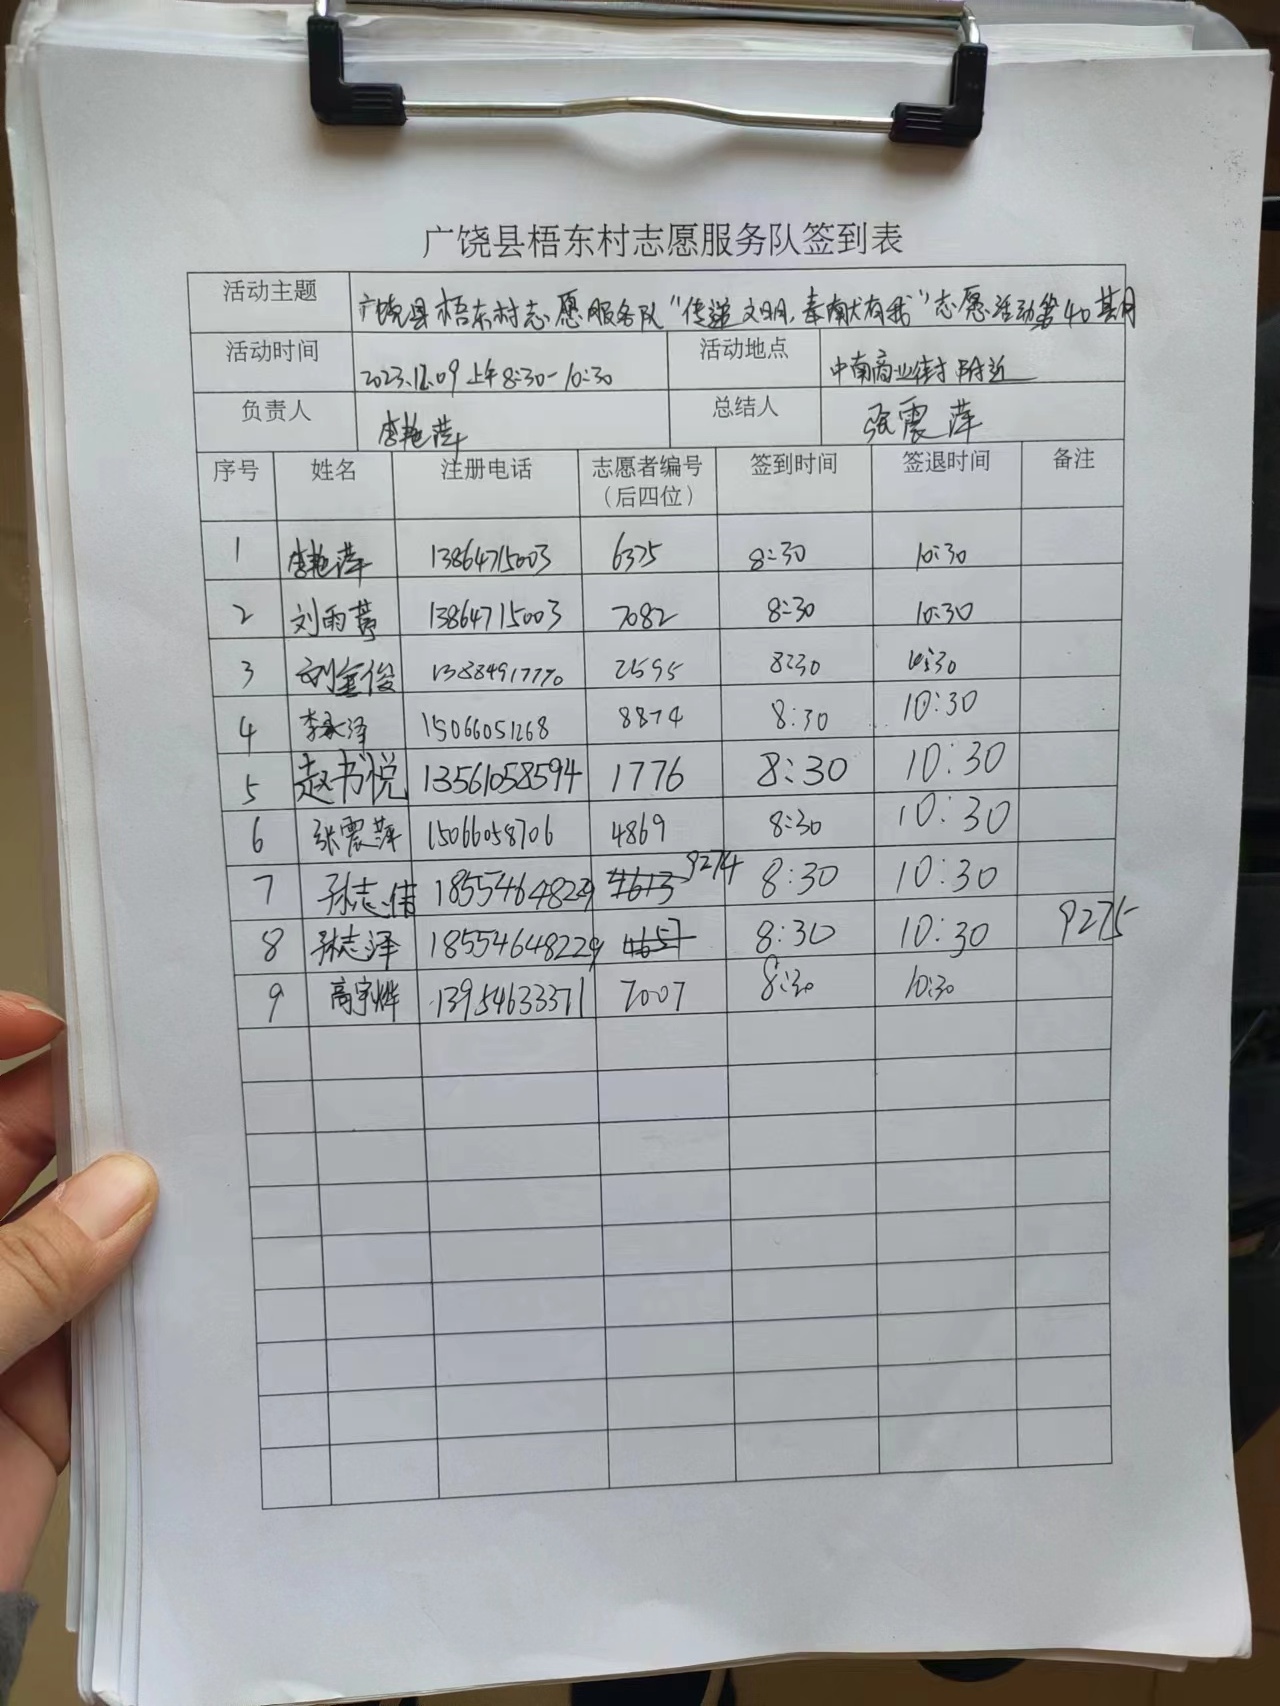 广饶县梧东村志愿服务队签到表
活动主题 广饶县梧东村志愿服务队“传递文明,奉献有我”志愿活动第40期
活动时间 2023.12.09 上午 8:30-10:30 活动地点 中南商业街附近
负责人 李艳萍 总结人 张震萍
序号 姓名 注册电话 志愿者编号 签到时间 签退时间 备注
(后四位)
1 李艳萍 13864715003 6375 8:30 10:30
2 刘雨菁 13864715003 7082 8:30 10:30
3 刘金俊 2595 8:30 10:30
4 李永泽 15066051268 8874 8:30 10:30
5 赵书悦 13561058594 1776 8:30 10:30
6 张震萍 15066058706 4869 8:30 10:30
7 孙志信 18554648229 9274 8:30 10:30
8 孙志泽 18554648229 4657 8:30 10:30 9275
9 高宇烨 13954633371 7007 8:30 10:30